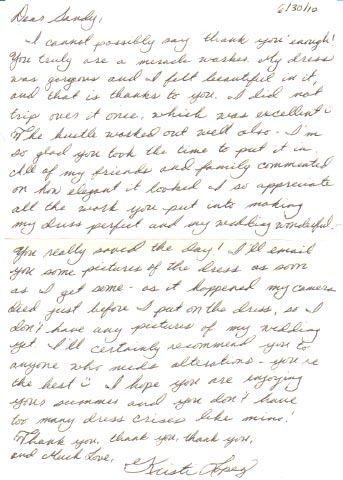 6/30/10
Dear Sandy,
I cannot possibly say thank you enough!
You truly are a miracle worker. My dress
was gorgeous and I felt beautiful in it,
and that is thanks to you. I did not
trip over it once, which was excellent!
The bustle worked out well also - I'm
so glad you took the time to put it in.
All of my friends and family commented
on how elegant it looked. I so appreciate
all the work you put into making
my dress perfect and my wedding wonderful.
You really saved the day! I'll email
you some pictures of the dress as soon
as I get some - as it happened my camera
died just before I put on the dress, so I
don't have any pictures of my wedding
yet. I'll certainly recommend you to
anyone who needs alterations - you're
the best :) I hope you are enjoying
your summer and you don't have
too many dress crises like mine!
Thank you, thank you, thank you,
and Much Love,
Kristi Lopez